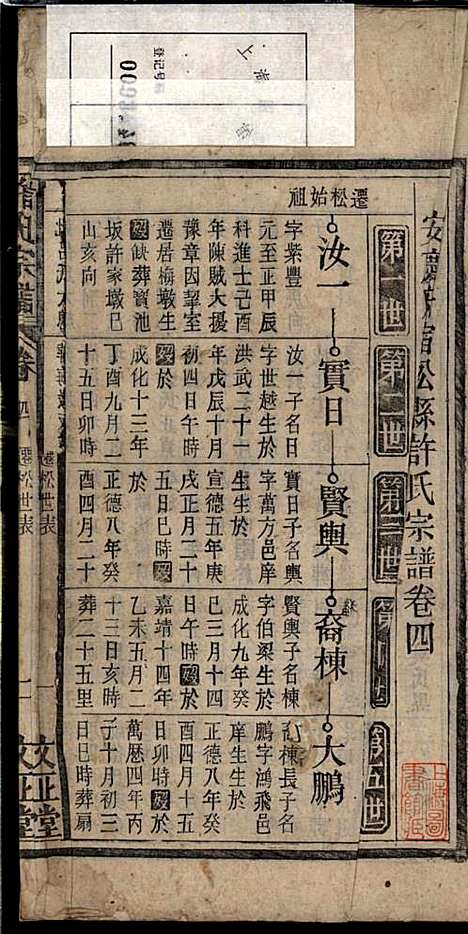 安徽宿松縣許氏宗譜卷四
第一世
第二世
第三世
第四世
第五世
遷松始祖
汝一
實日
賢輿
裔棟
大鵬
字紫豐
元至正甲辰
科進士己酉
年陳賊大擾
豫章因挈室
遷居梅墩生
歿缺葬寶池
坂許家墩巳
山亥向
汝一子名日
字世越生於
洪武二十一
年戊辰十月
初四日
歿於
成化十三年
丁酉九月二
十五日卯時
實日子名輿
字萬方邑庠
生生於
宣德五年庚
戌正月十一
五日巳時歿
於
正德八年癸
酉四月二十
賢輿子名棟
字伯梁生於
成化九年癸
巳三月十四
日午時歿於
嘉靖十四年
乙未五月二
十三日亥時
葬二十五里
裔棟長子名
鵬字鴻飛邑
庠生生於
正德八年癸
酉四月十五
日卯時歿於
萬厯四年丙
子十月初三
日巳時葬扇
許氏宗譜
卷四
遷松世表
文正堂
登记号
上海
上海圖書館藏